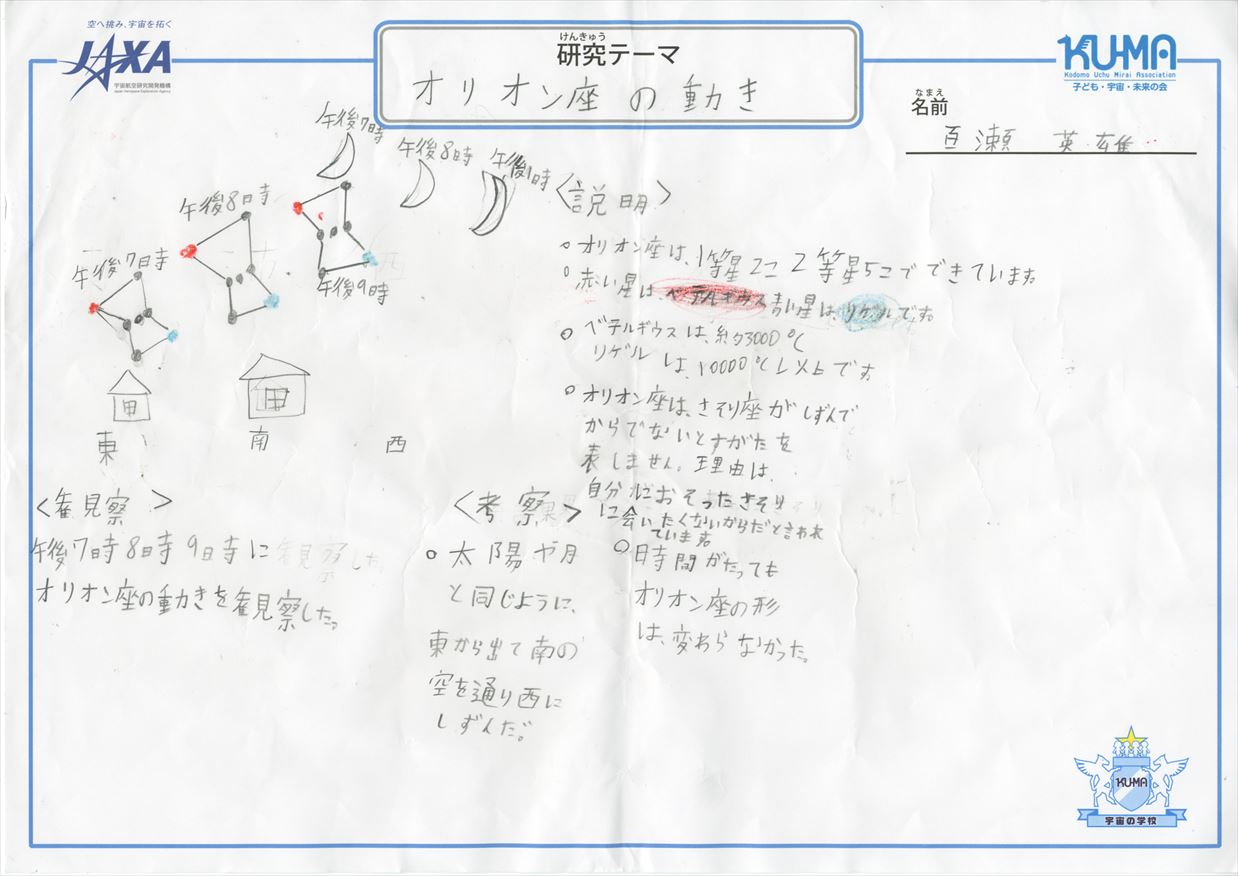 空へ挑み、宇宙を拓く
JAXA
宇宙航空研究開発機構
Japan Aerospace Exploration Agency
けんきゅう
研究テーマ
オリオン座の動き
KU-MA
Kodomo Uchu Mirai Association
子ども・宇宙・未来の会
なまえ
名前
百瀬 英雄
午後7時
午後8時
午後9時
午後7時
午後8時
午後9時
東
南
西
<観察>
午後7時8時9時に
オリオン座の動きを観察した。
<考察>
○太陽や月
と同じように、
東から出て南の
空を通り西に
しずんだ。
<説明>
○オリオン座は、1等星2こ2等星5こでできています。
○赤い星は、ベテルギウス青い星は、リゲルです。
○ベテルギウスは、約3000℃
リゲルは、10000℃以上です
○オリオン座は、さそり座がしずんで
からでないとすがたを
表しません。理由は、
自分がおそったさそり
に会いたくないからだと言われ
ています。
○時間がたっても
オリオン座の形
は、変わらなかった。
KU-MA
宇宙の学校